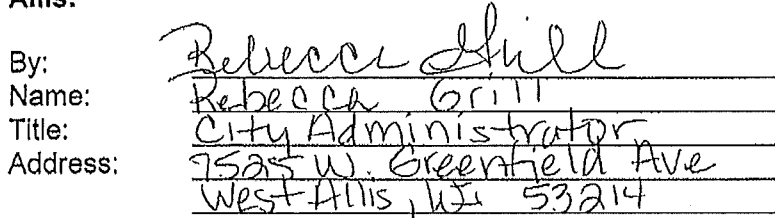 Allis:
By: Rebecca Grill
Name: Rebecca Grill
Title: City Administrator
Address: 7525 W. Greenfield Ave
West Allis, WI 53214